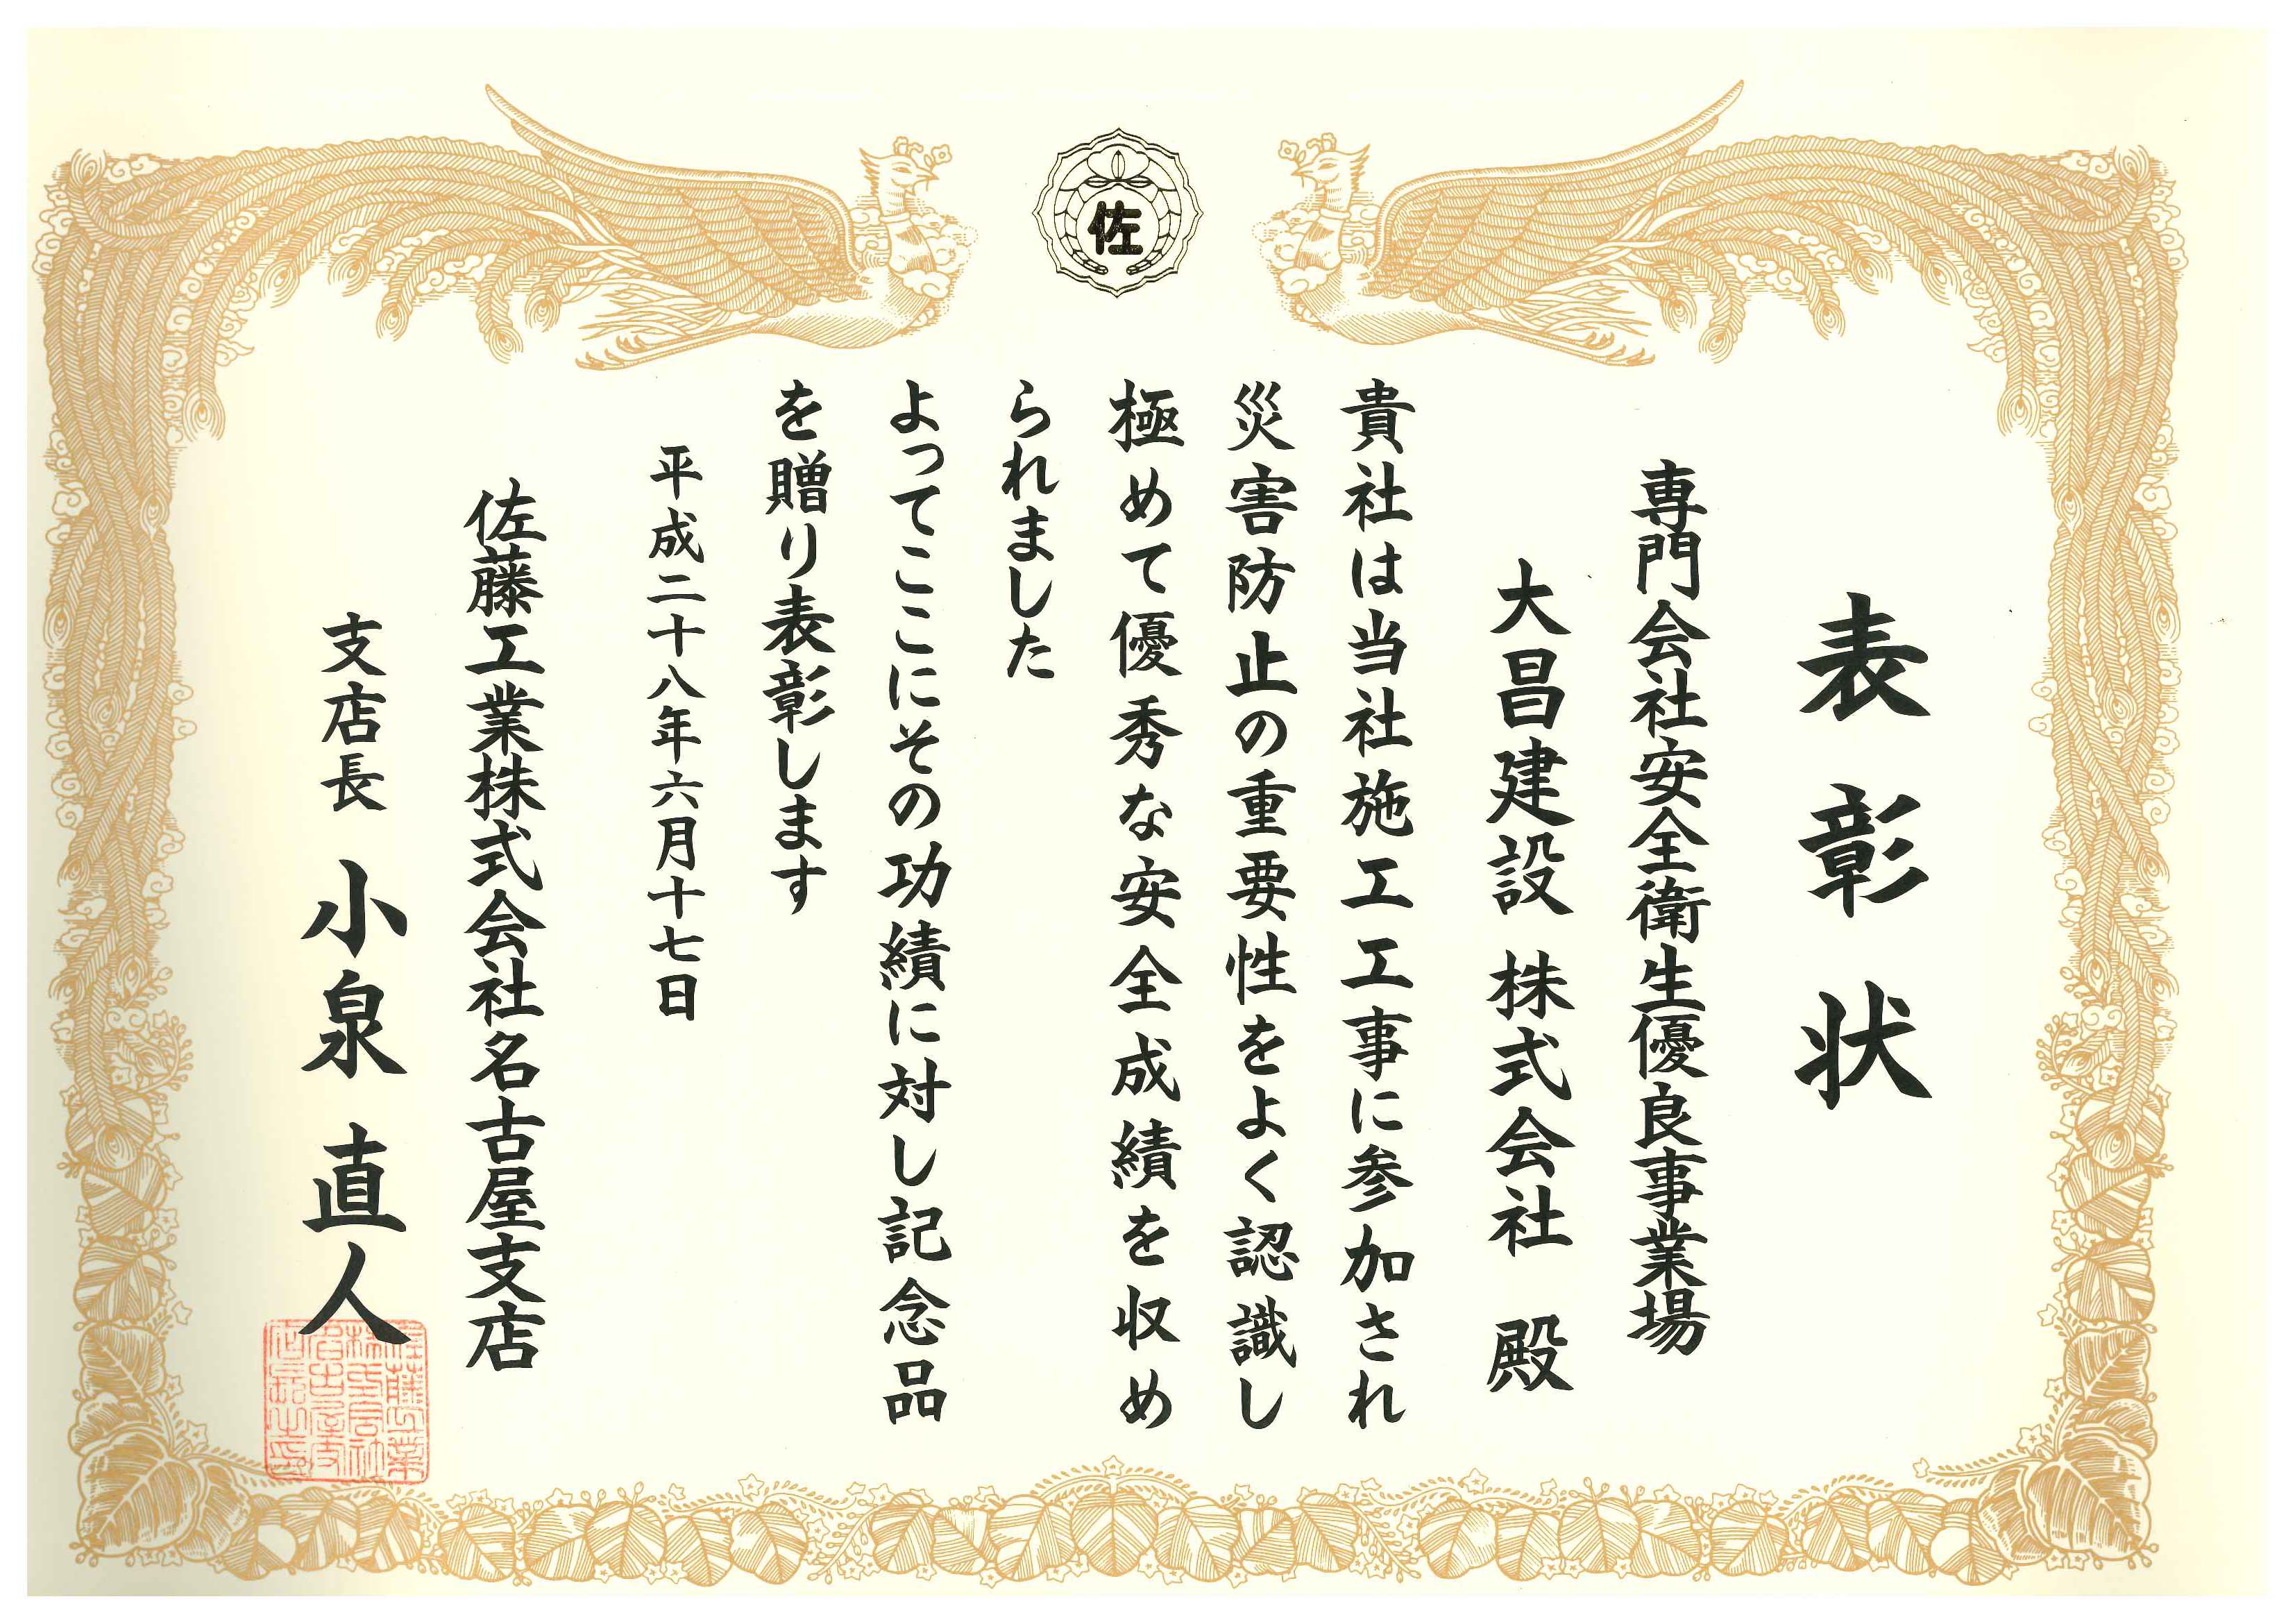 佐
表彰状
専門会社安全衛生優良事業場
大昌建設 株式会社 殿
貴社は当社施工工事に参加され
災害防止の重要性をよく認識し
極めて優秀な安全成績を収め
られました
よってここにその功績に対し記念品
を贈り表彰します
平成二十八年六月十七日
佐藤工業株式会社名古屋支店
支店長 小泉直人
佐藤工業
株式会社
名古屋支
店長之印